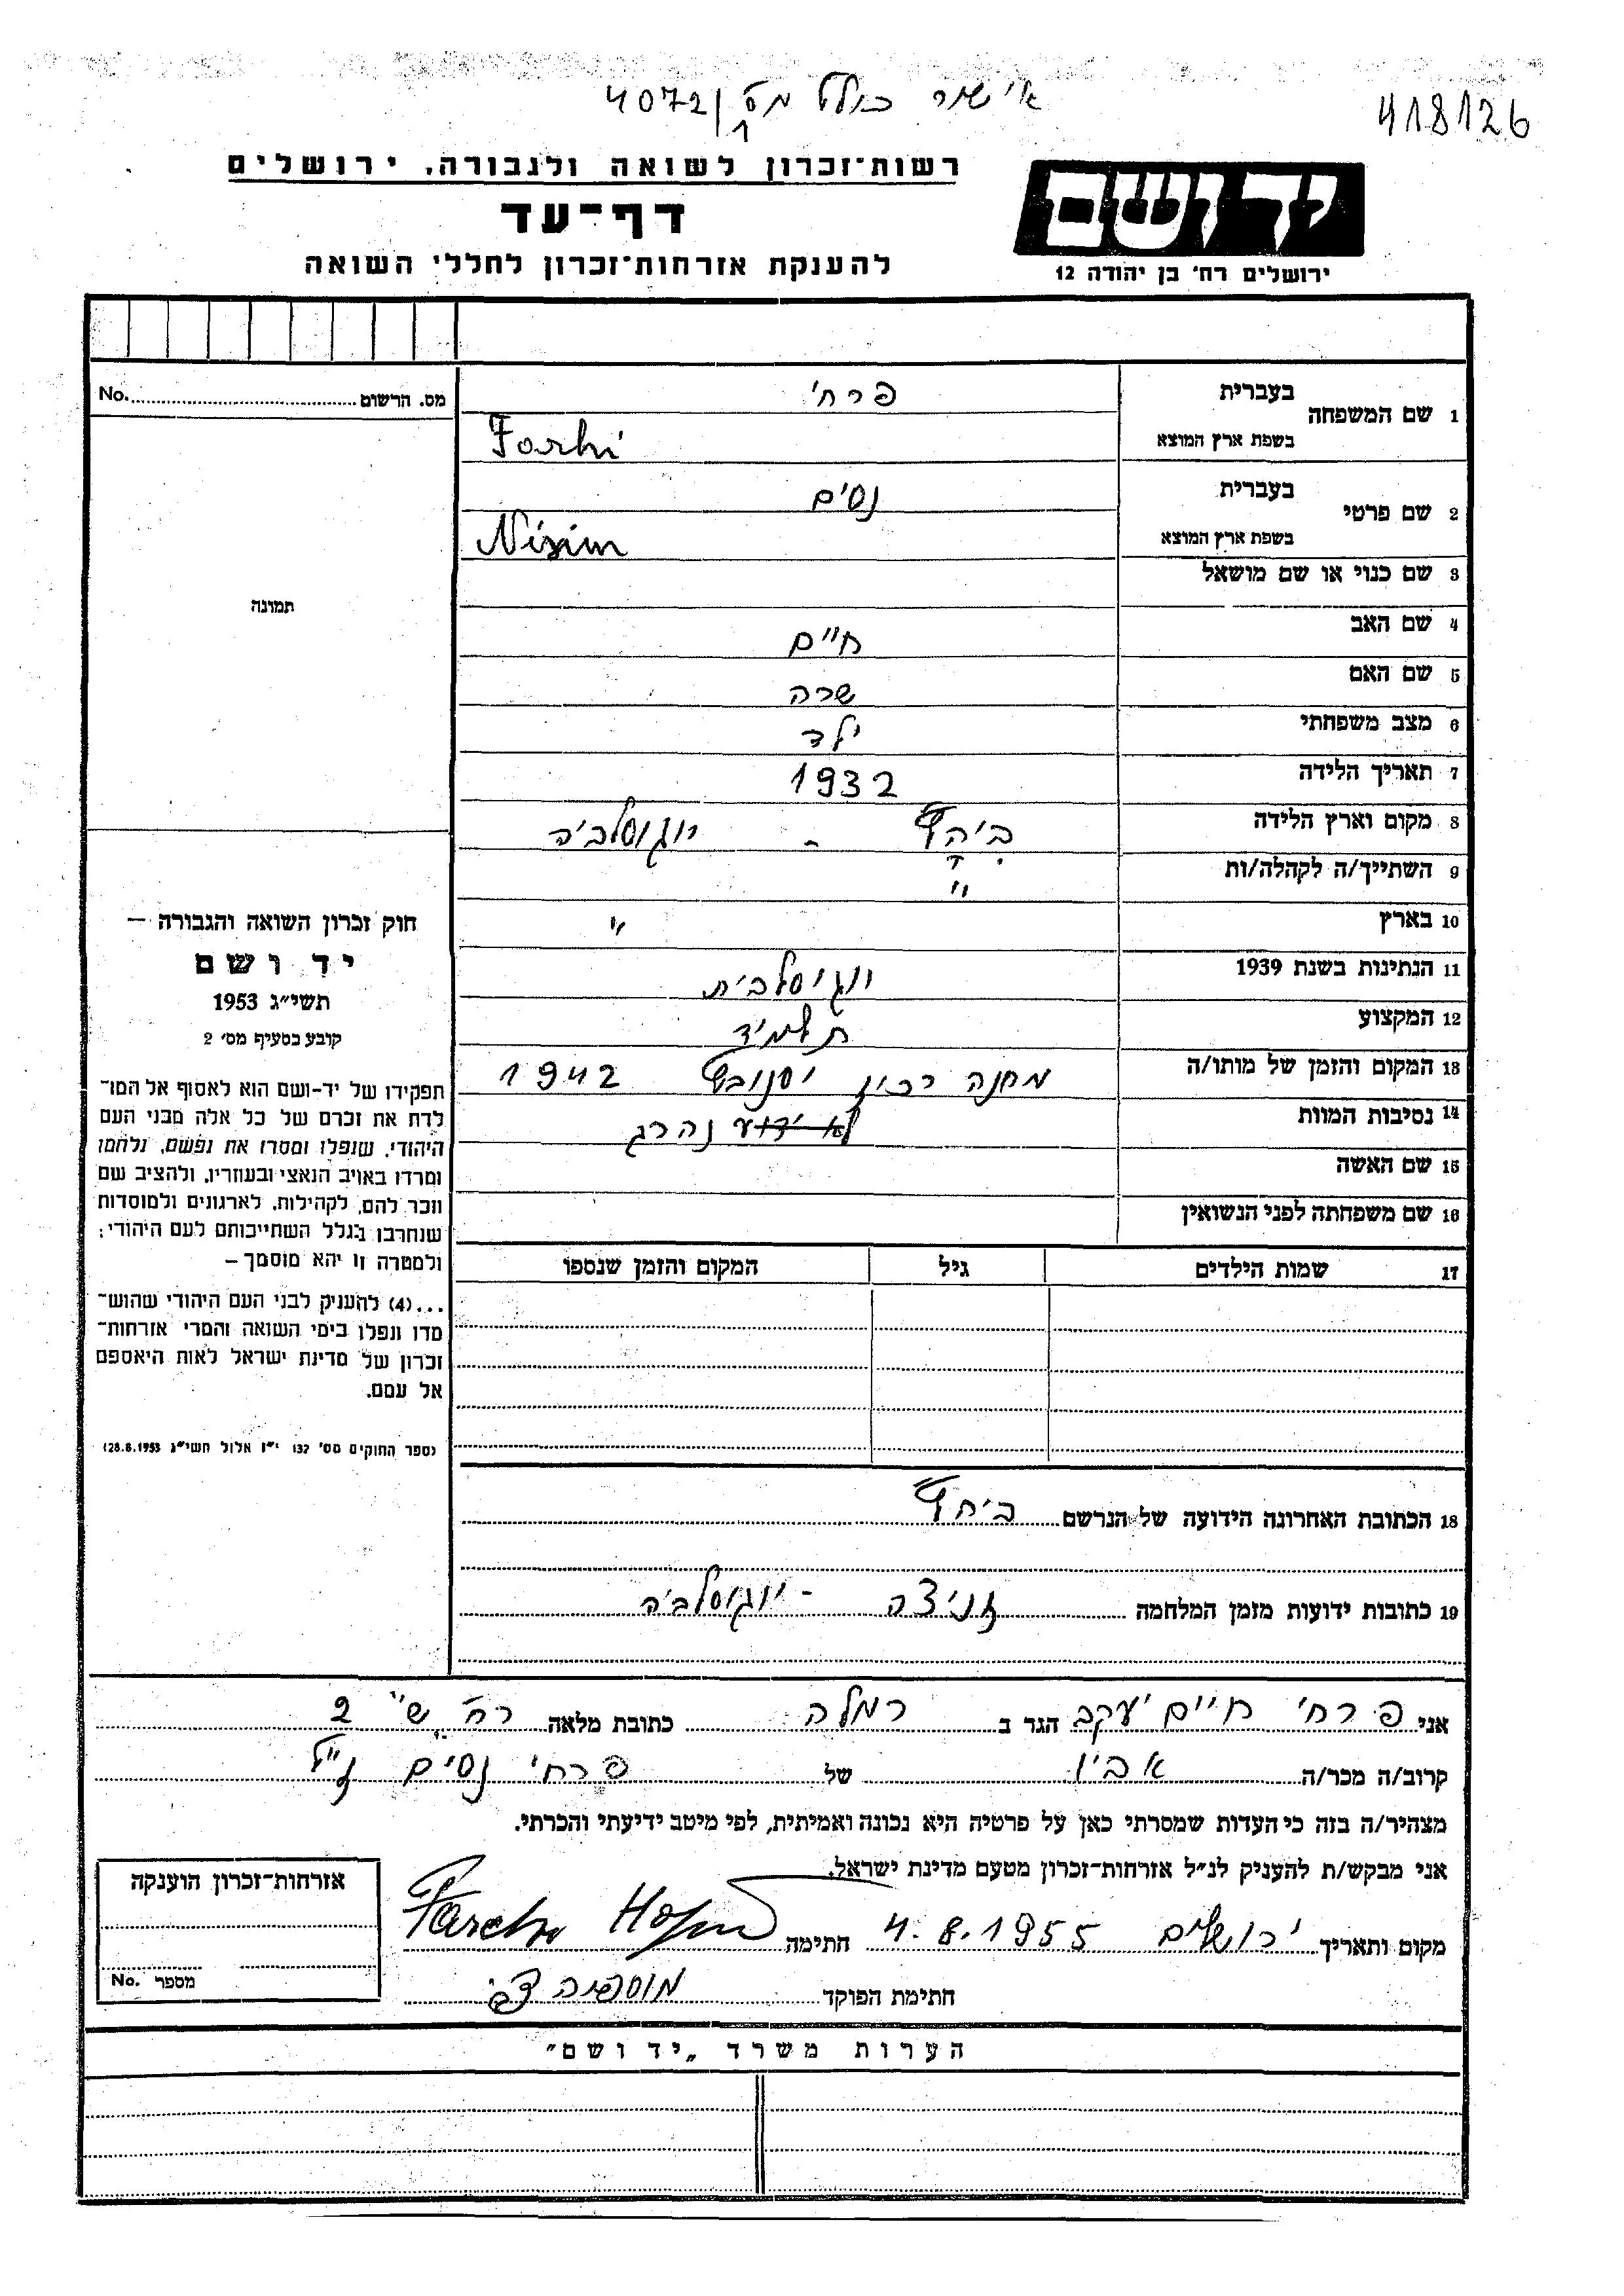 אישור כולל מס 4072/1
418126
רשות־זכרון לשואה ולגבורה, ירושלים
דף־עד
להענקת אזרחות־זכרון לחללי השואה
יד ושם
ירושלים רח' בן יהודה 12
מס. הרשום No.
תמונה
1 שם המשפחה בעברית פרחי
בשפת ארץ המוצא Farhi
2 שם פרטי בעברית נסים
בשפת ארץ המוצא Nisim
3 שם כנוי או שם מושאל
4 שם האב חיים
5 שם האם שרה
6 מצב משפחתי ילד
7 תאריך הלידה 1932
8 מקום וארץ הלידה ביהץ - יוגוסלביה
9 השתייך/ה לקהלה/ות "
10 בארץ "
11 הנתינות בשנת 1939 יוגוסלבית
12 המקצוע תלמיד
13 המקום והזמן של מותו/ה מחנה רכוז יסנובץ 1942
14 נסיבות המוות לא ידוע נהרג
15 שם האשה
16 שם משפחתה לפני הנשואין
17 שמות הילדים גיל המקום והזמן שנספו
חוק זכרון השואה והגבורה —
יד ושם
תשי״ג 1953
קובע בסעיף מס׳ 2
תפקידו של יד-ושם הוא לאסוף אל המו־
לדת את זכרם של כל אלה מבני העם
היהודי, שנפלו ומסרו את נפשם, נלחמו
ומרדו באויב הנאצי ובעוזריו, ולהציב שם
וזכר להם, לקהילות, לארגונים ולמוסדות
שנחרבו בגלל השתייכותם לעם היהודי;
ולמטרה זו יהא מוסמך —
...(4) להעניק לבני העם היהודי שהוש־
מדו ונפלו בימי השואה והמרי אזרחות־
זכרון של מדינת ישראל לאות היאספם
אל עמם.
(ספר החוקים מס׳ 132 י״ז אלול תשי״ג 28.8.1953)
18 הכתובת האחרונה הידועה של הנרשם ביחץ
19 כתובות ידועות מזמן המלחמה זניצה - יוגוסלביה
אני פרחי חיים יעקב הגר ב רמלה כתובת מלאה רח ש"י 2
קרוב/ה מכר/ה אביו של פרחי נסים ז"ל
מצהיר/ה בזה כי העדות שמסרתי כאן על פרטיה היא נכונה ואמיתית, לפי מיטב ידיעתי והכרתי.
אני מבקש/ת להעניק לנ״ל אזרחות־זכרון מטעם מדינת ישראל.
מקום ותאריך ירושלים 4.8.1955 חתימה
חתימת הפוקד
אזרחות־זכרון הוענקה
מספר No.
הערות משרד „יד ושם״